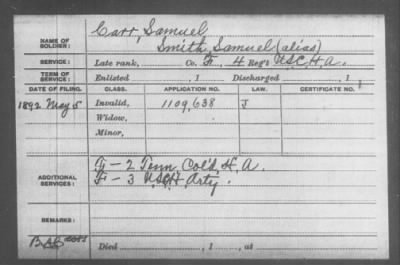 Carr, Samuel
NAME OF SOLDIER: Smith, Samuel (alias)
SERVICE: Late rank, Co. F, 4 Reg't U.S.C.H.A.
TERM OF SERVICE: Enlisted , 1 Discharged , 1
DATE OF FILING. CLASS. APPLICATION NO. LAW. CERTIFICATE NO.
1892 May 5 Invalid, 1109,638 J
Widow,
Minor,
ADDITIONAL SERVICES: F - 2 Tenn. Col'd H.A.
F - 3 U.S.C.H. Arty.
REMARKS:
Died , 1 , at